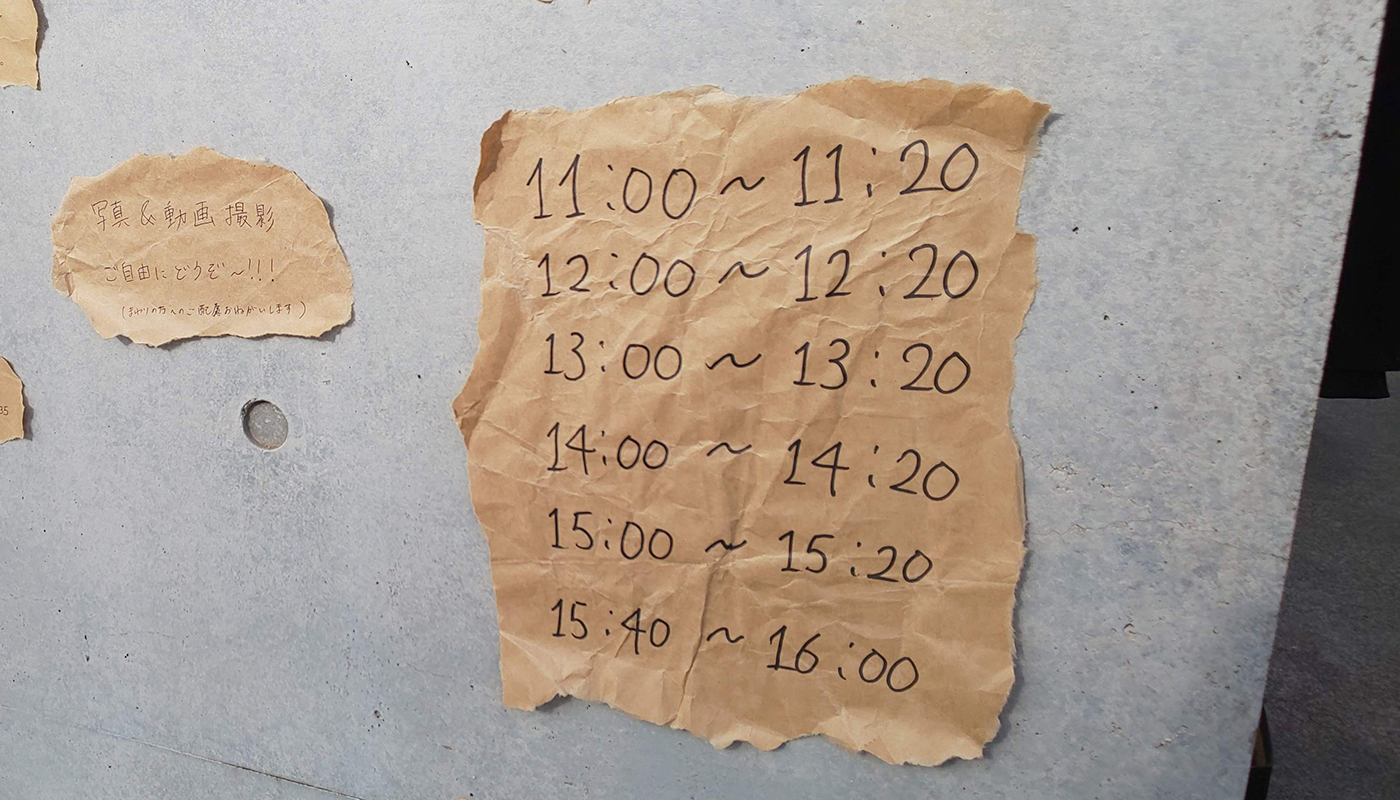 写真&動画撮影
ご自由にどうぞ~!!!
(まわりの方へのご配慮おねがいします)
35
11:00~11:20
12:00~12:20
13:00~13:20
14:00~14:20
15:00~15:20
15:40~16:00